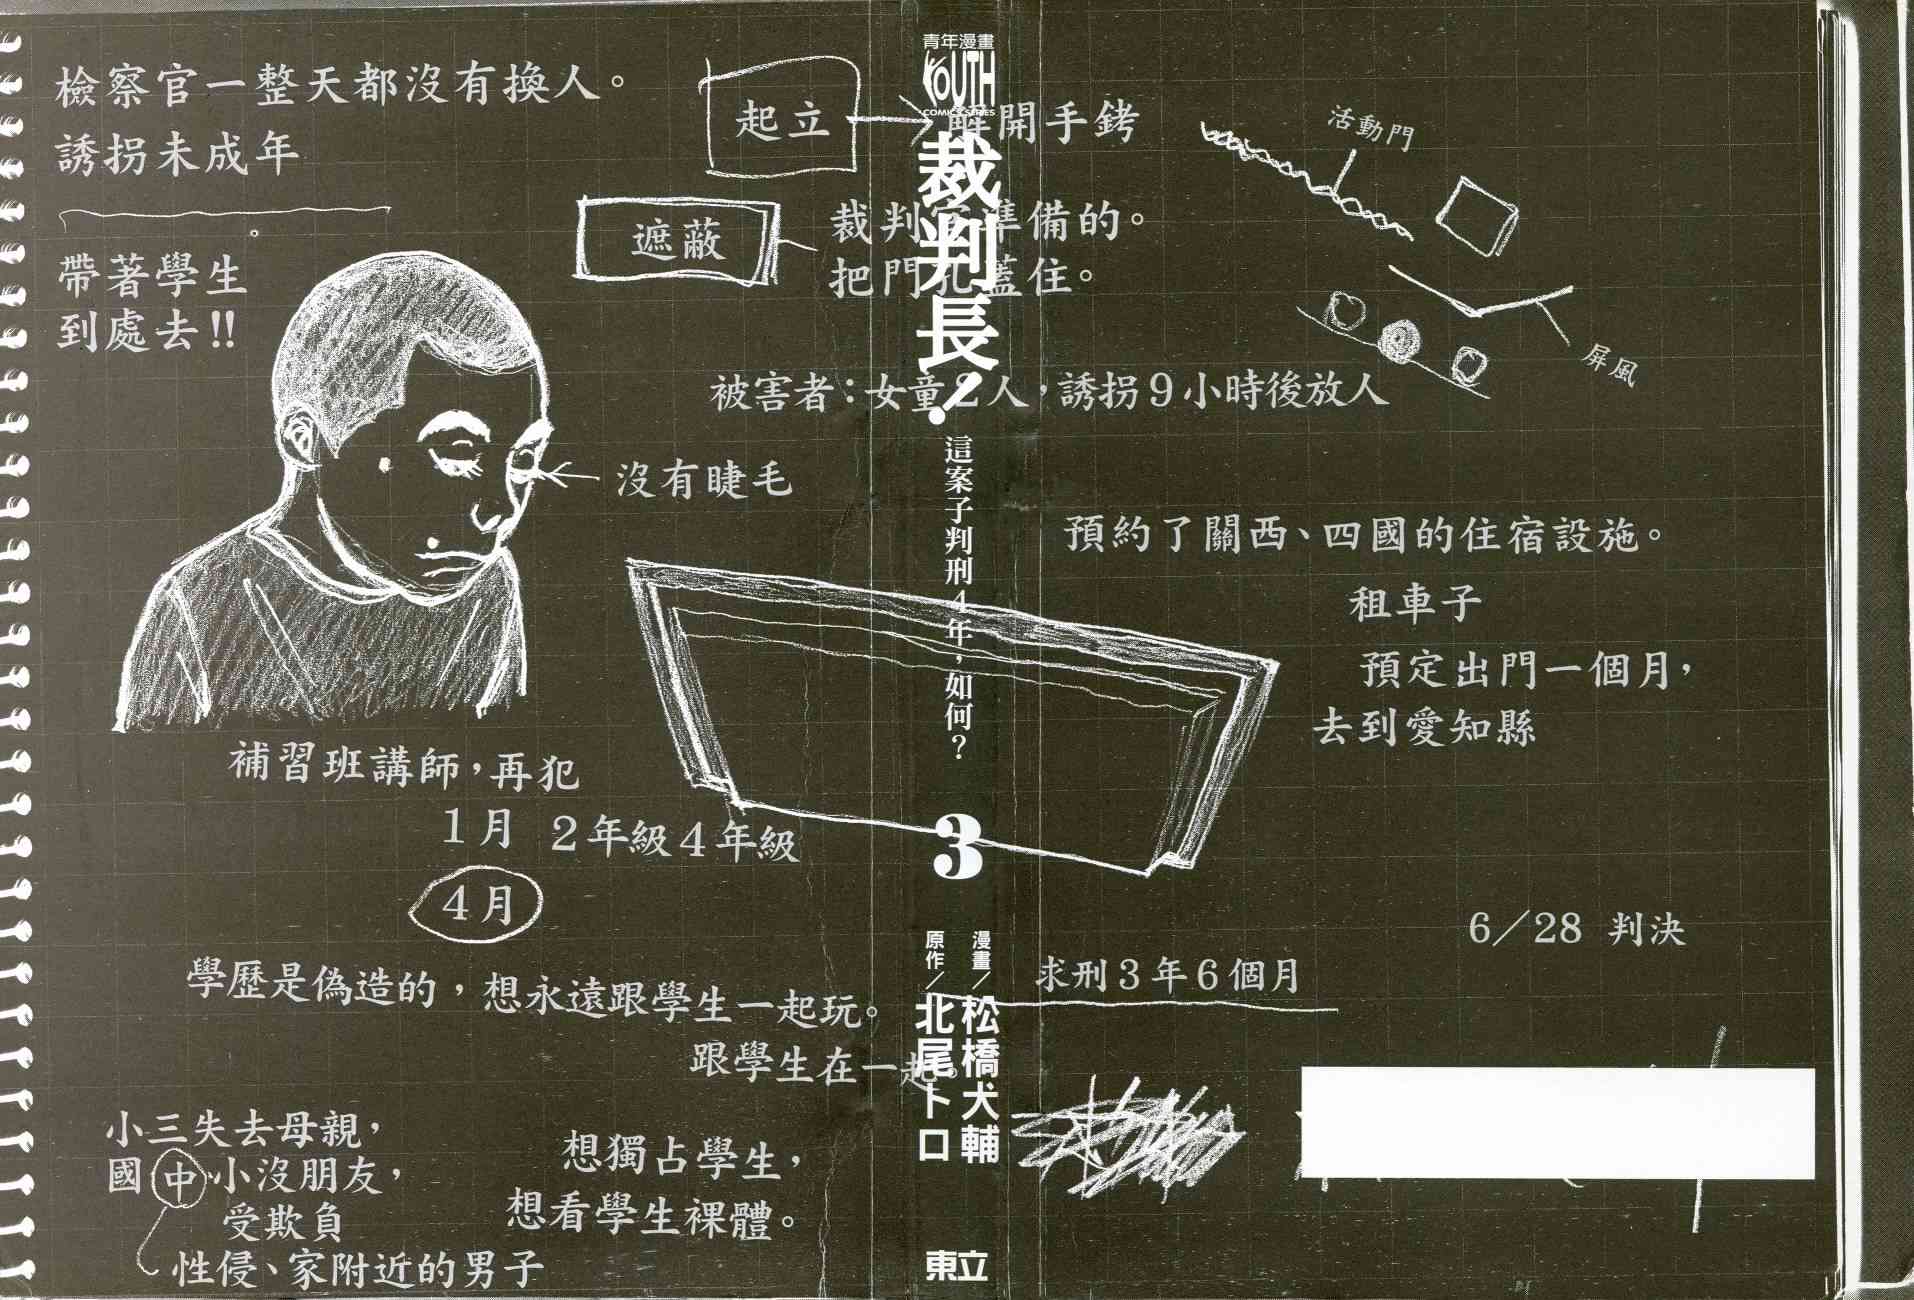 檢察官一整天都沒有換人。
誘拐未成年
帶著學生
到處去!!
起立
解開手銬
遮蔽
裁判官準備的。
把門孔蓋住。
活動門
屏風
被害者:女童2人,誘拐9小時後放人
沒有睫毛
預約了關西、四國的住宿設施。
租車子
預定出門一個月,
去到愛知縣
補習班講師,再犯
1月 2年級4年級
4月
學歷是偽造的,想永遠跟學生一起玩。
跟學生在一起。
小三失去母親,
國中小沒朋友,
受欺負
性侵、家附近的男子
想獨占學生,
想看學生裸體。
求刑3年6個月
6/28 判決
青年漫畫
YOUTH
COMICS SERIES
裁判長!
這案子判刑4年,如何?
3
漫畫/松橋犬輔
原作/北尾トロ
東立